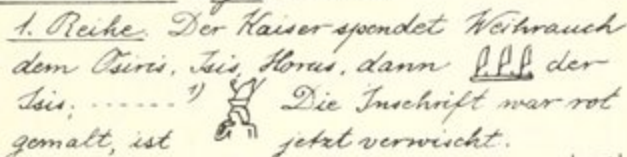 1. Reihe. Der Kaiser spendet Weihrauch
dem Osiris, Isis, Horus, dann der
Isis; ........ 1) Die Inschrift war rot
gemalt, ist jetzt verwischt.